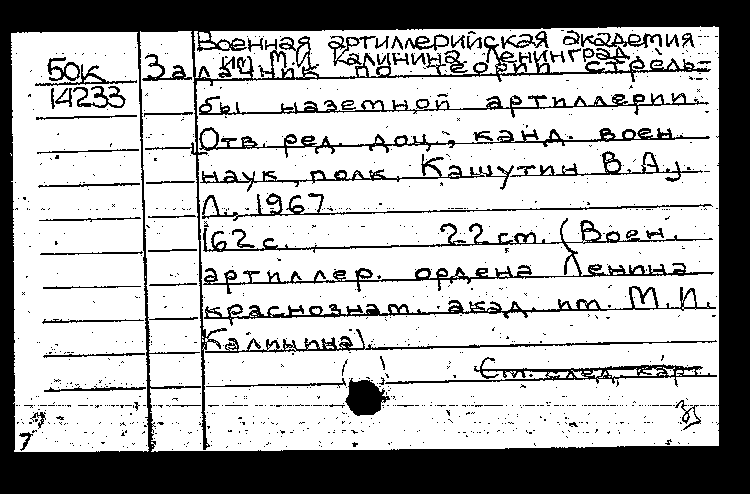 Военная артиллерийская академия
им М.И Калинина Ленинград
БОК За лачник по теории стрель=
14233 бы наземной артиллерии.
Отв. ред. доц., канд. воен.
наук, полк, Кашутин В.А.,.
Л., 1967.
162 с. 22 ст. (Воен.
артиллер. ордена Ленина
краснознам. акад. им. М.И.
Калинина).
См. след, карт.
7